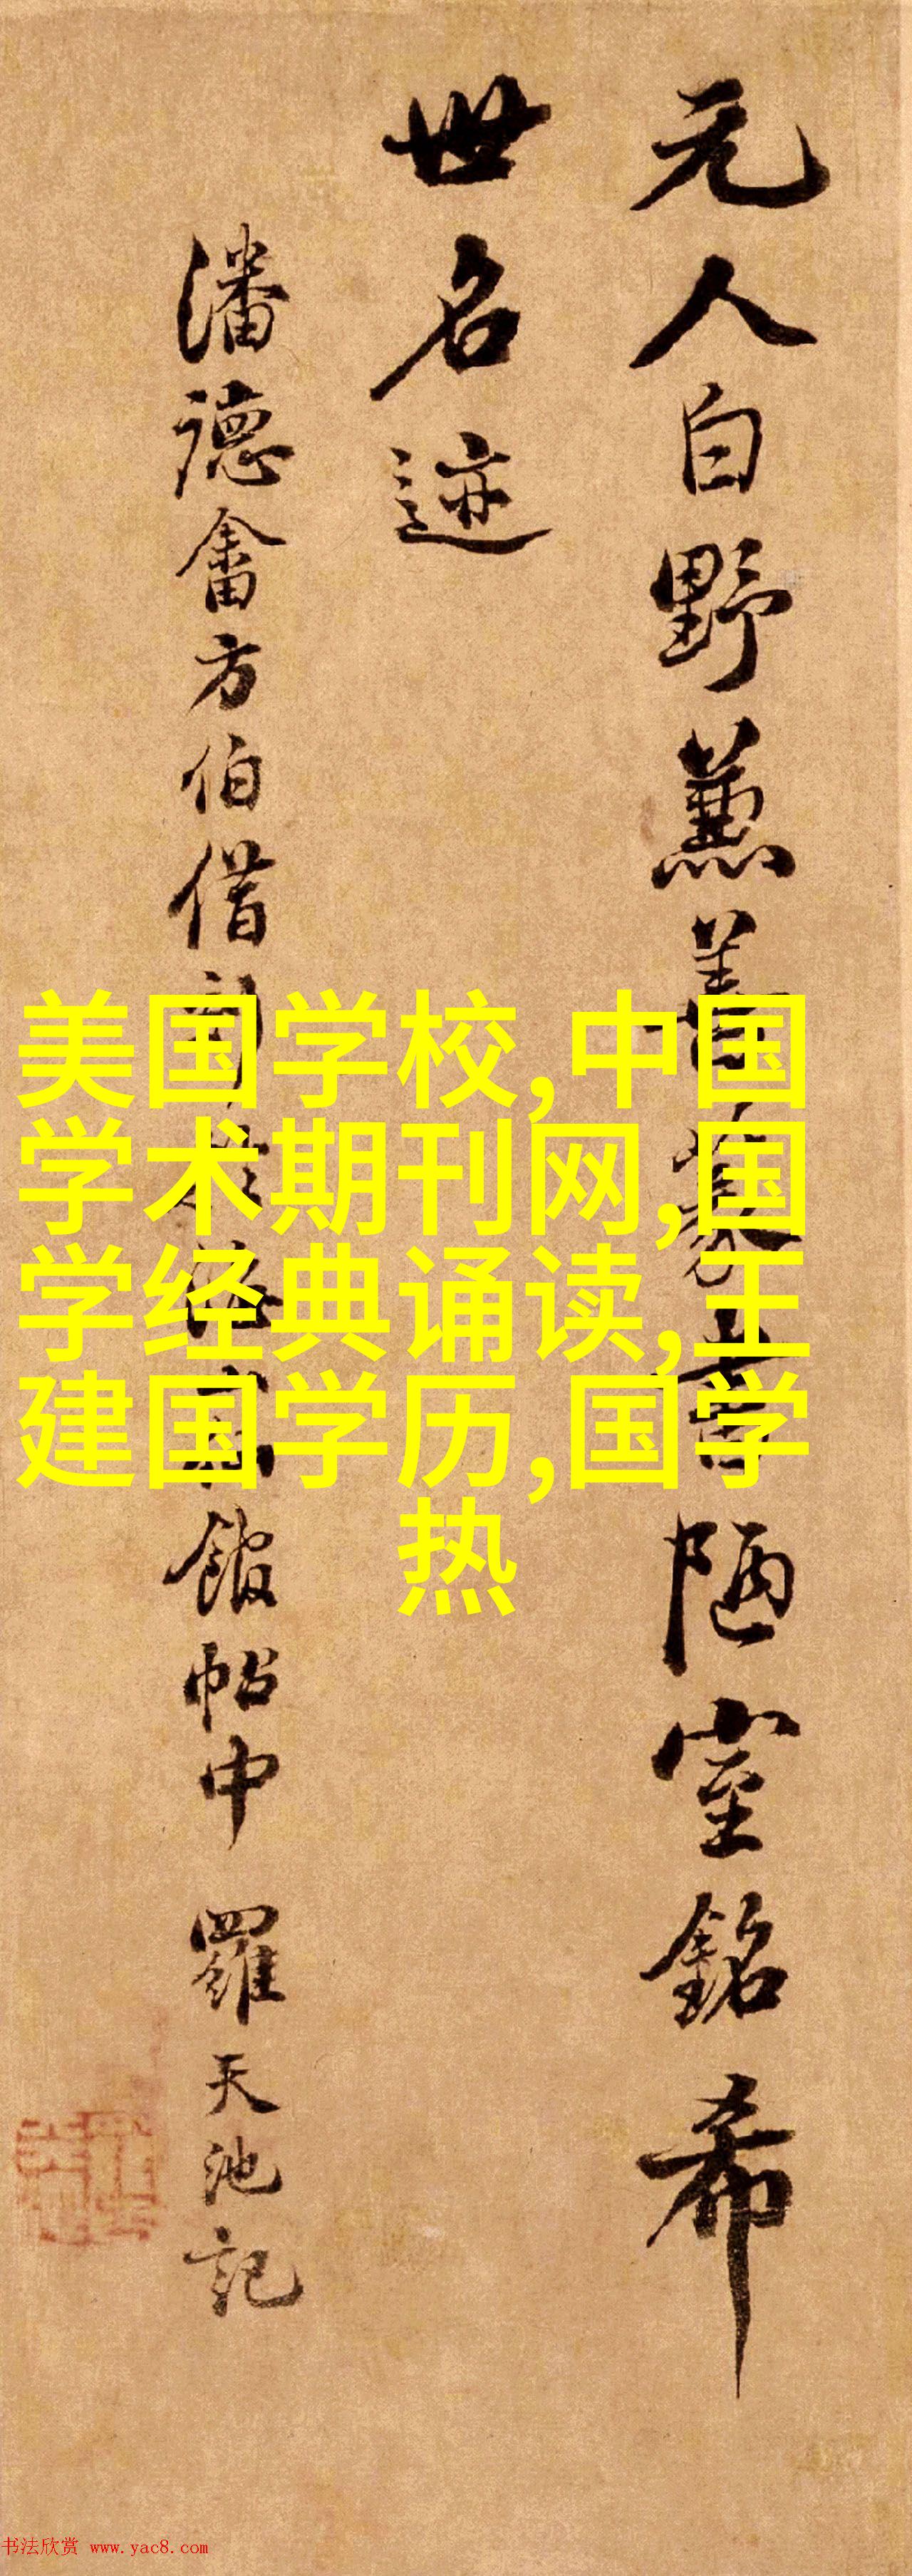 元人白野兼善篆書陋室銘希
世名迹
潘德畬方伯借館帖中 羅天池記
美国学校,中国
学术期刊网,国
学经典诵读,王
建国学历,国学
热
书法欣赏 www.yac8.com